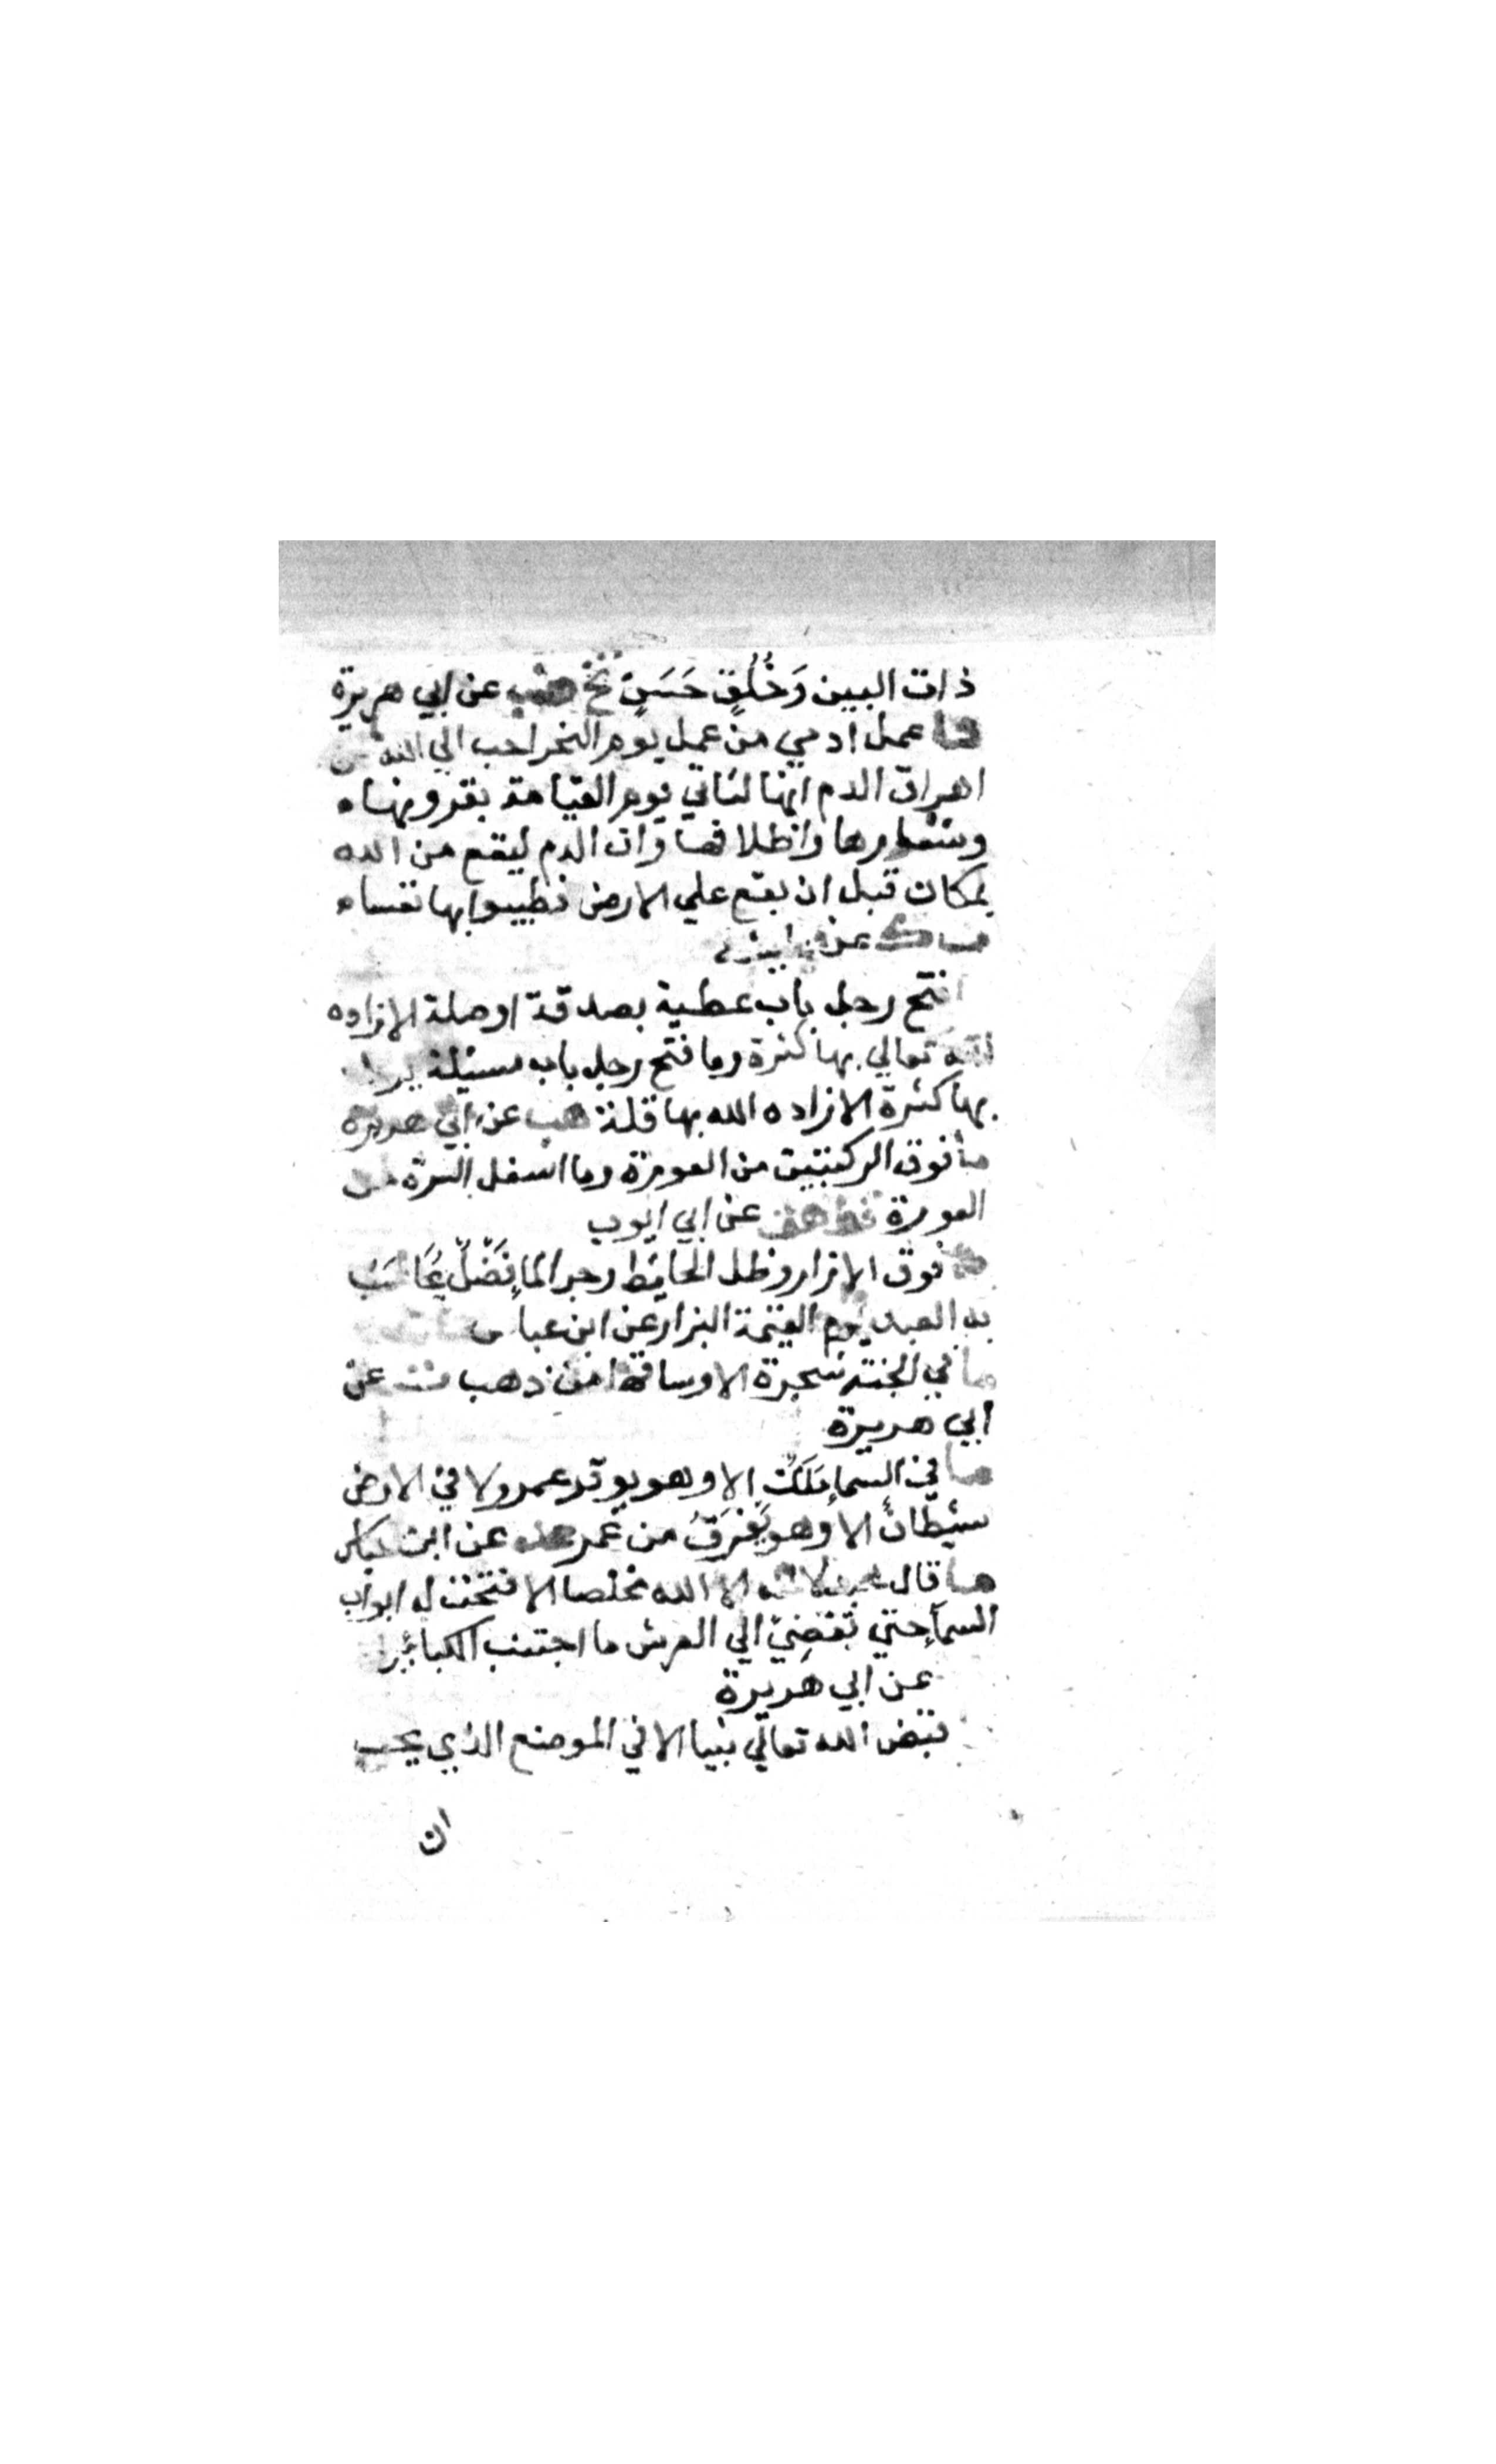 ذات البين وَخُلُقٍ حَسَنٍ تخ هب عن ابي هريرة
ما عمل ادمي من عمل يوم النحر احب الي الله من
اهراق الدم انها لتاتي يوم القيامة بقرونها
وشعارها واظلافها وان الدم ليقع من الله
بمكان قبل ان يقع علي الارض فطيبوا بها نفسا
ك عن
فتح رجل باب عطية بصدقة او صلة الا زاده
الله تعالي بها كثرة وما فتح رجل باب مسئلة يريد
بها كثرة الا زاده الله بها قلة هب عن ابي هريرة
ما فوق الركبتين من العورة وما اسفل السرة من
العورة قط هق عن ابي ايوب
فوق الازار وظل الحايط وجر الما فَضْلٌ يُحَاسَبُ
به العبد يوم القيمة البزار عن ابن عباس
ما في الجنة شجرة الا وساقها من ذهب ت عن
ابي هريرة
ما في السما مَلَكٌ الا وهو يوقر عمر ولا في الارض
شيطانٌ الا وهو يَفْرَقُ من عُمر عد عن ابن عباس
ما قال عبد لا اله الا الله مخلصا الا فتحت له ابواب
السما حتي تُفضِيَ الي العرش ما اجتنب الكبائر
عن ابي هريرة
قبض الله تعالي نبيا الا في الموضع الذي يحب
ان